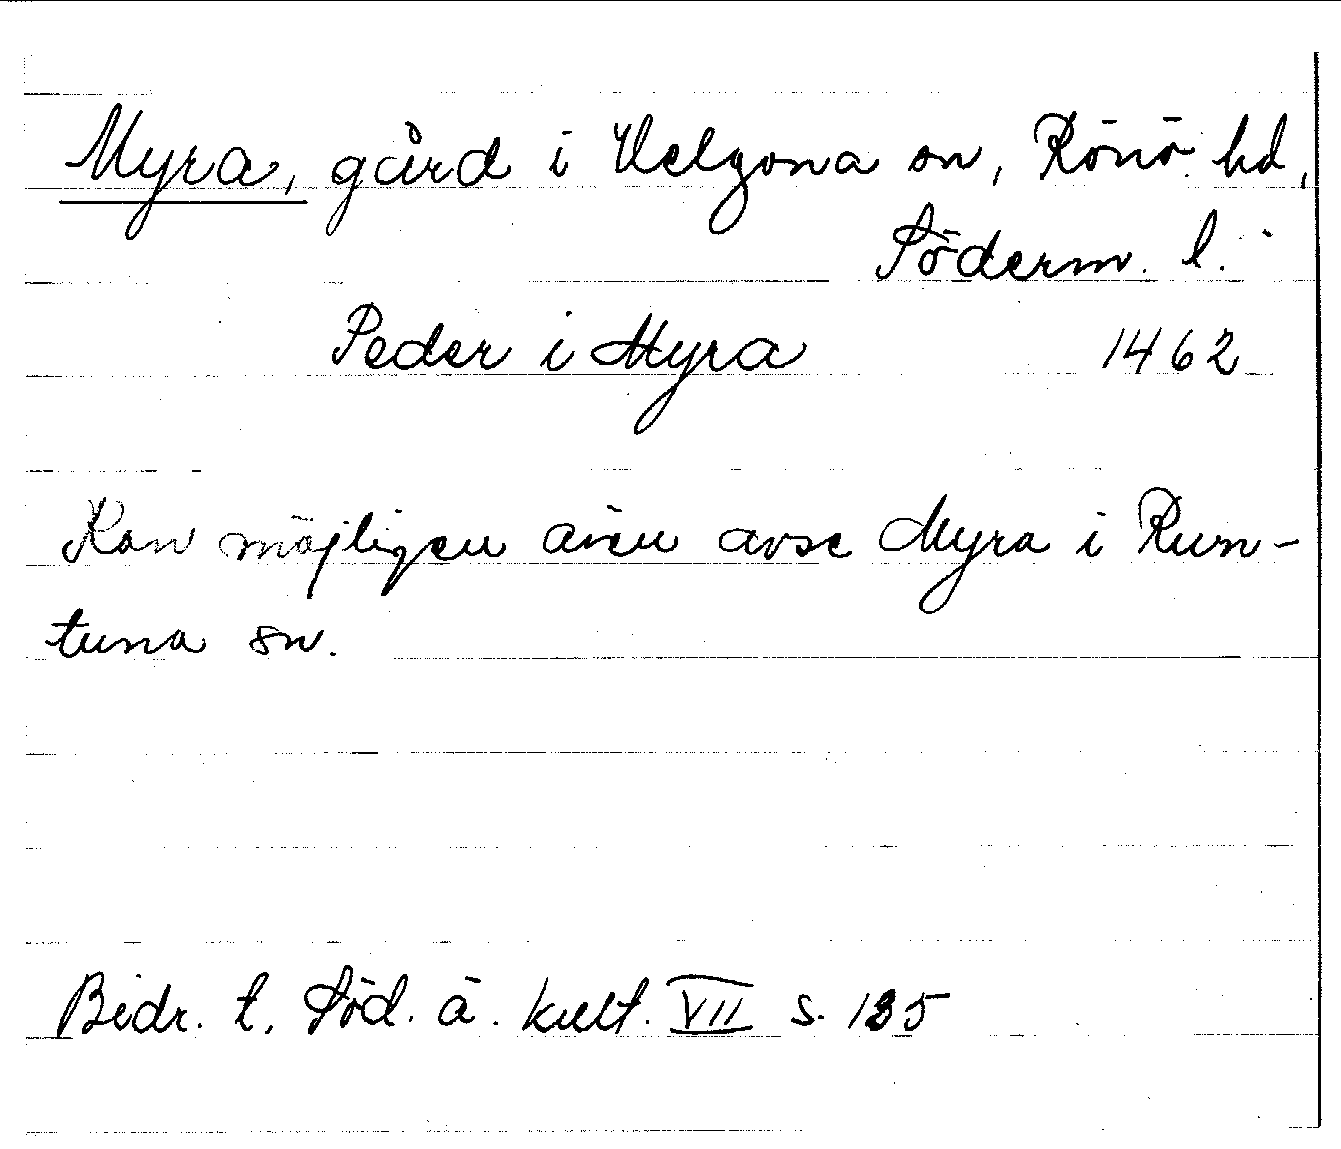 Myra, gård i Helgona sn, Rönö hd,
Söderm. l.
Peder i Myra 1462
Kan möjligen även avse Myra i Run-
tuna sn.
Bidr. t. Söd. ä. kult. VII s. 135